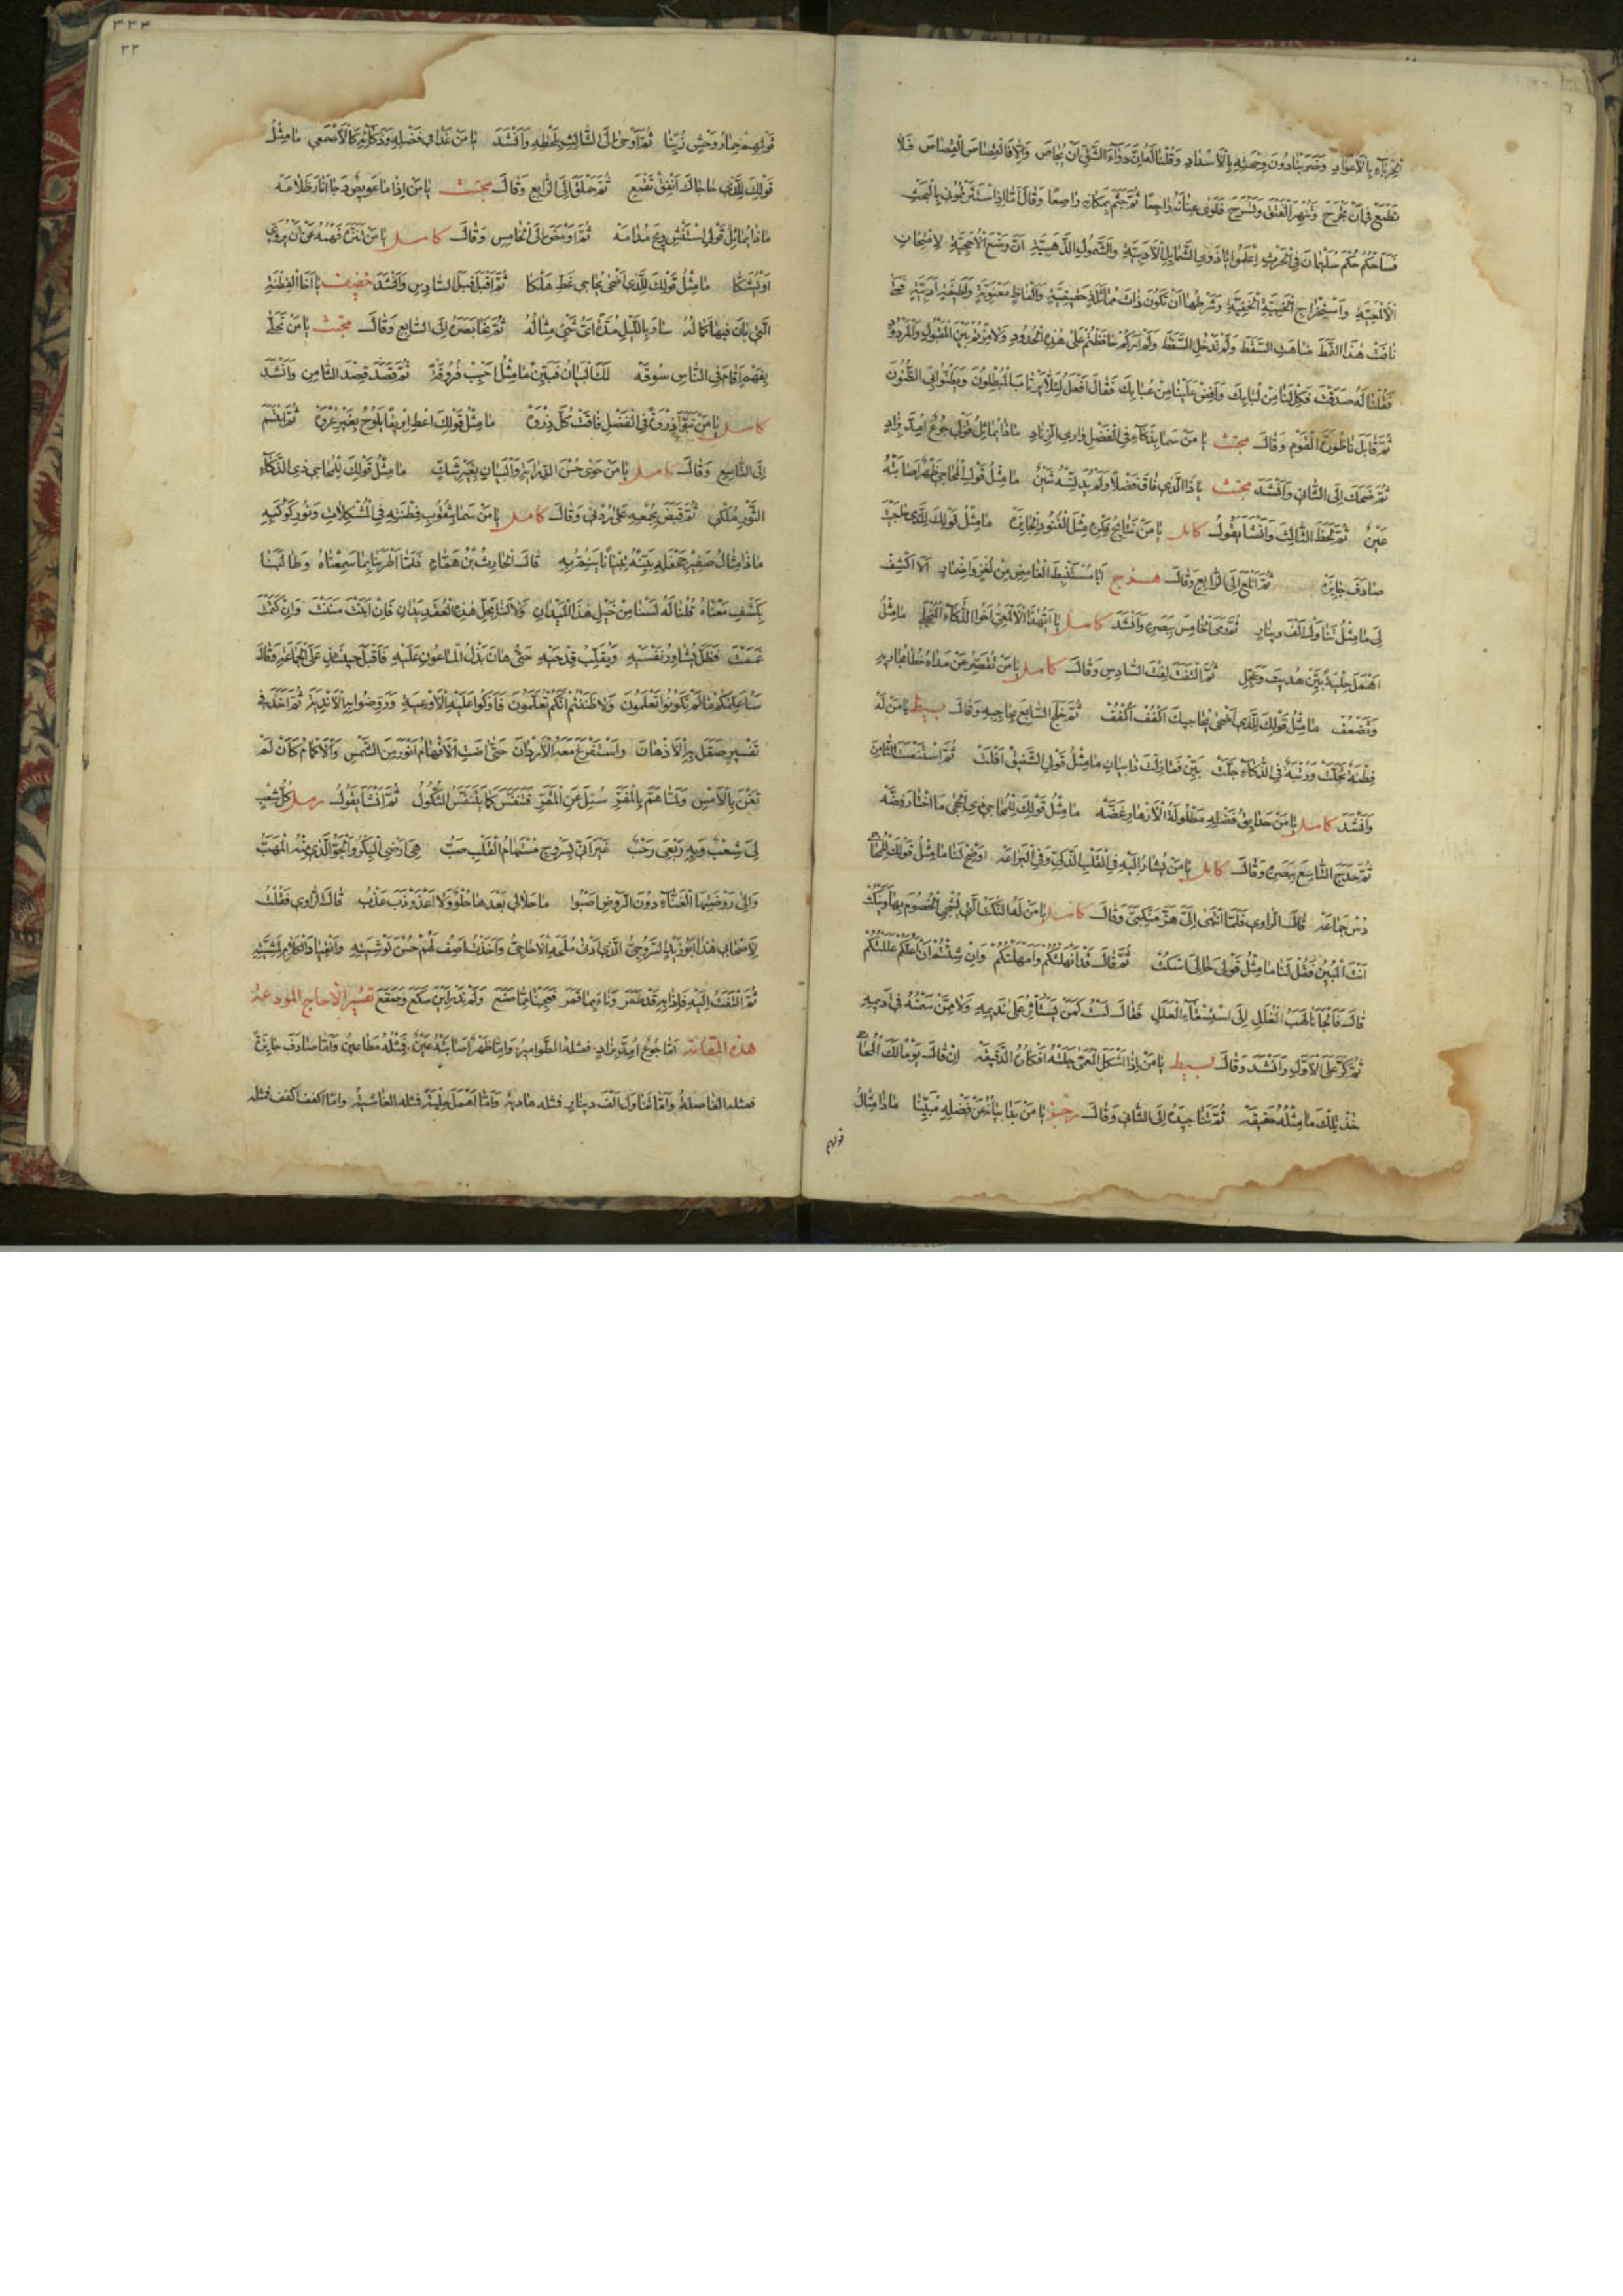 الحرباء بالاعواد وضربنا دون وجهته بالاسداد وقلنا له ان دواء الشق ان يحاص والا فالقصاص القصاص فلا
تطمع في ان تجرح وتنهر الفتق وتسرح فلوى عنانه راجعا ثم جثم بمكانه راصعا وقال اما اذا استثرتموني بالبحث
فساحكم حكم سليمان في الحرث اعلموا يا ذوي الشمايل الادبية والشمول الذهبية ان وضع الاحجية لامتحان
الالمعية واستخراج الخبية الخفية وشرطها ان تكون ذات مماثلة حقيقية والفاظ معنوية ولطيفة ادبية فمتى
نافت هذا النمط ضاهت السقط ولم تدخل السفط ولم اركم حافظتم على هذه الحدود ولا ميزتم بين المقبول والمردود
فقلنا له صدقت فكل لنا من لبابك وافض علينا من عبابك فقال افعل لئلا يرتاب المبطلون ويظنوا بي الظنون
ثم قابل ناظورة القوم وقال مجتث يا من سما بذكاء في الفضل واري الزناد ماذا يماثل قولي جوع امد بزاد
ثم ضحك الى الثاني وانشد مجتث يا ذا الذي فاق فضلا ولم يدنسه شين ما مثل قول المحاجي ظهر اصابته
عين ثم لحظ الثالث وانشا يقول كامل يا من نتايج فكره مثل النقود الجايزة ما مثل قولك للذي حاجيت
صادف جايزه ثم اتلع الى الرابع وقال هزج ايا مستنبط الغامض من لغز واضمار الا اكشف
لي ما مثل تناول الف دينار ثم رمى الخامس ببصره وانشد كامل يا ايهذا الالمعي اخو الذكاء المنجلي ما مثل
اهمل حلية بين هديت وعجل ثم التفت لفت السادس وقال كامل يا من تقصر عن مداه خطا مجاريه
وتضعف ما مثل قولك للذي اضحى يحاجيك اكفف اكفف ثم خلج السابع بحاجبه وقال بسيط يا من له
فطنة تجلت ورتبة في الذكاء جلت بين فما زلت ذا بيان ما مثل قولي الشقيق افلت ثم استنصت الثامن
وانشد كامل يا من حدايق فضله مطلولة الازهار غضه ما مثل قولك للمحاجي ذي الحجى ما اختار فضه
ثم حدج التاسع ببصره وقال كامل يا من يشار اليه في القلب الذكي وفي البراعه اوضح لنا ما مثل قولك للمحاجي
دس جماعه قال الراوي فلما انتهى الي هز منكبي وقال كامل يا من له النكت التي يشجي الخصوم بها وينكت
انت المبين فقل لنا ما مثل قولي خالي اسكت ثم قال قد انهلتكم وامهلتكم وان شئتم ان اعلكم عللتكم
قال فالجانا لهب الغلل الى استسقاء العلل فقال لست كمن يستاثر على نديمه ولا ممن سمنه في اديمه
ثم كر على الاول وانشد وقال بسيط يا من اذا اشكل المعمى جلته افكاره الدقيقه ان قال يوما لك المحاجي
خذ تلك ما مثله حقيقه ثم ثنا جيده الى الثاني وقال رجز يا من بدا بيانه عن فضله مبينا ماذا مثال
قولهم
٣٣٤
٣٣
قولهم حمار وحش زينا ثم اوحى الى الثالث بلحظه وانشد يا من غدا في فضله وذكائه كالاصمعي ما مثل
قولك للذي حاجاك انفق تقمع ثم حملق الى الرابع وقال مجتث يا من اذا ما عويص دجا انار ظلامه
ماذا يماثل قولي استنش ريح مدامه ثم اومض الى الخامس وقال كامل يا من تنزه فهمه عن ان يروي
او يشكا ما مثل قولك للذي اضحى يحاجي غط هلكا ثم اقبل قبل السادس وانشد خفيف يا اخا الفطنة
التي بان فيها كماله سار بالليل مدة اي شي مثاله ثم نحا بصره الى السابع وقال مجتث يا من تحلى
بفهم اقام في الناس سوقه لك البيان فبين ما مثل احبب فروقة ثم قصد قصد الثامن وانشد
كامل يا من تبوا ذروة في الفضل فاقت كل ذروه ما مثل قولك اعط ابريقا يلوح بغير عروه ثم ابتسم
الى التاسع وقال كامل يا من حوى حسن الدراية والبيان بغير شك ما مثل قولك للمحاجي ذي الذكاء
الثور ملكي ثم قبض بجمعه على ردني وقال كامل يا من سما بثقوب فطنته في المشكلات ونور كوكبه
ماذا مثال صفير جحفلة بينه تبيانا ينم به قال الحارث بن همام فلما اطربنا بما سمعناه وطالبنا
بكشف معناه قلنا له لسنا من خيل هذا الميدان ولا لنا بحل هذه العقد يدان فان ابنت مننت وان كتمت
غممت فظل يشاور نفسيه ويقلب قدحيه حتى هان بذل الماعون عليه فاقبل حينئذ على الجماعة وقال
ساعلمكم ما لم تكونوا تعلمون ولا ظننتم انكم تعلمون فاوكوا عليه الاوعية وروضوا به الاندية ثم اخذ في
تفسير صقل به الاذهان واستفرغ معه الاردان حتى اضت الافهام انور من الشمس والاكمام كان لم
تغن بالامس ولما هم بالمفر سئل عن المقر فتنفس كما يتنفس الثكول ثم انشا يقول رمل كل شعب
لي شعب وبه ربعي رحب غير اني بسروج مستهام القلب صب هي ارضي البكر والجو الذي منه المهب
والى روضتها الغناء دون الروض اصبوا ما حلا لي بعدها حلو ولا اعذوذب عذب قال الراوي فقلت
لاصحابي هذا ابو زيد السروجي الذي ادنى ملحه الاحاجي واخذت اصف لهم حسن توشيته وانقياد الكلام لمشيته
ثم التفت اليه فاذا به قد طمر وناء بما قمر فعجبنا مما صنع ولم ندر اين سكع وصقع تفسير الاحاجي المودعة
هذه المقامة اما جوع امد بزاد فمثله الطوامير واما ظهر اصابته عين فمثله مطاعين واما صادف جايزة
فمثله الفاصلة واما تناول الف دينار فمثله هادية واما اهمل حلية فمثله الغاشية واما اكفف اكفف فمثله